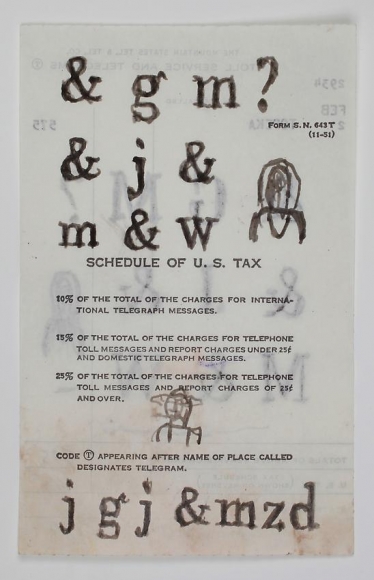 & g m?
FORM S. N. 643T
(11-51)
& j &
m & w
SCHEDULE OF U. S. TAX
10% OF THE TOTAL OF THE CHARGES FOR INTERNA-
TIONAL TELEGRAPH MESSAGES.
15% OF THE TOTAL OF THE CHARGES FOR TELEPHONE
TOLL MESSAGES AND REPORT CHARGES UNDER 25¢
AND DOMESTIC TELEGRAPH MESSAGES.
25% OF THE TOTAL OF THE CHARGES FOR TELEPHONE
TOLL MESSAGES AND REPORT CHARGES OF 25¢
AND OVER.
CODE Ⓣ APPEARING AFTER NAME OF PLACE CALLED
DESIGNATES TELEGRAM.
j g j & m z d